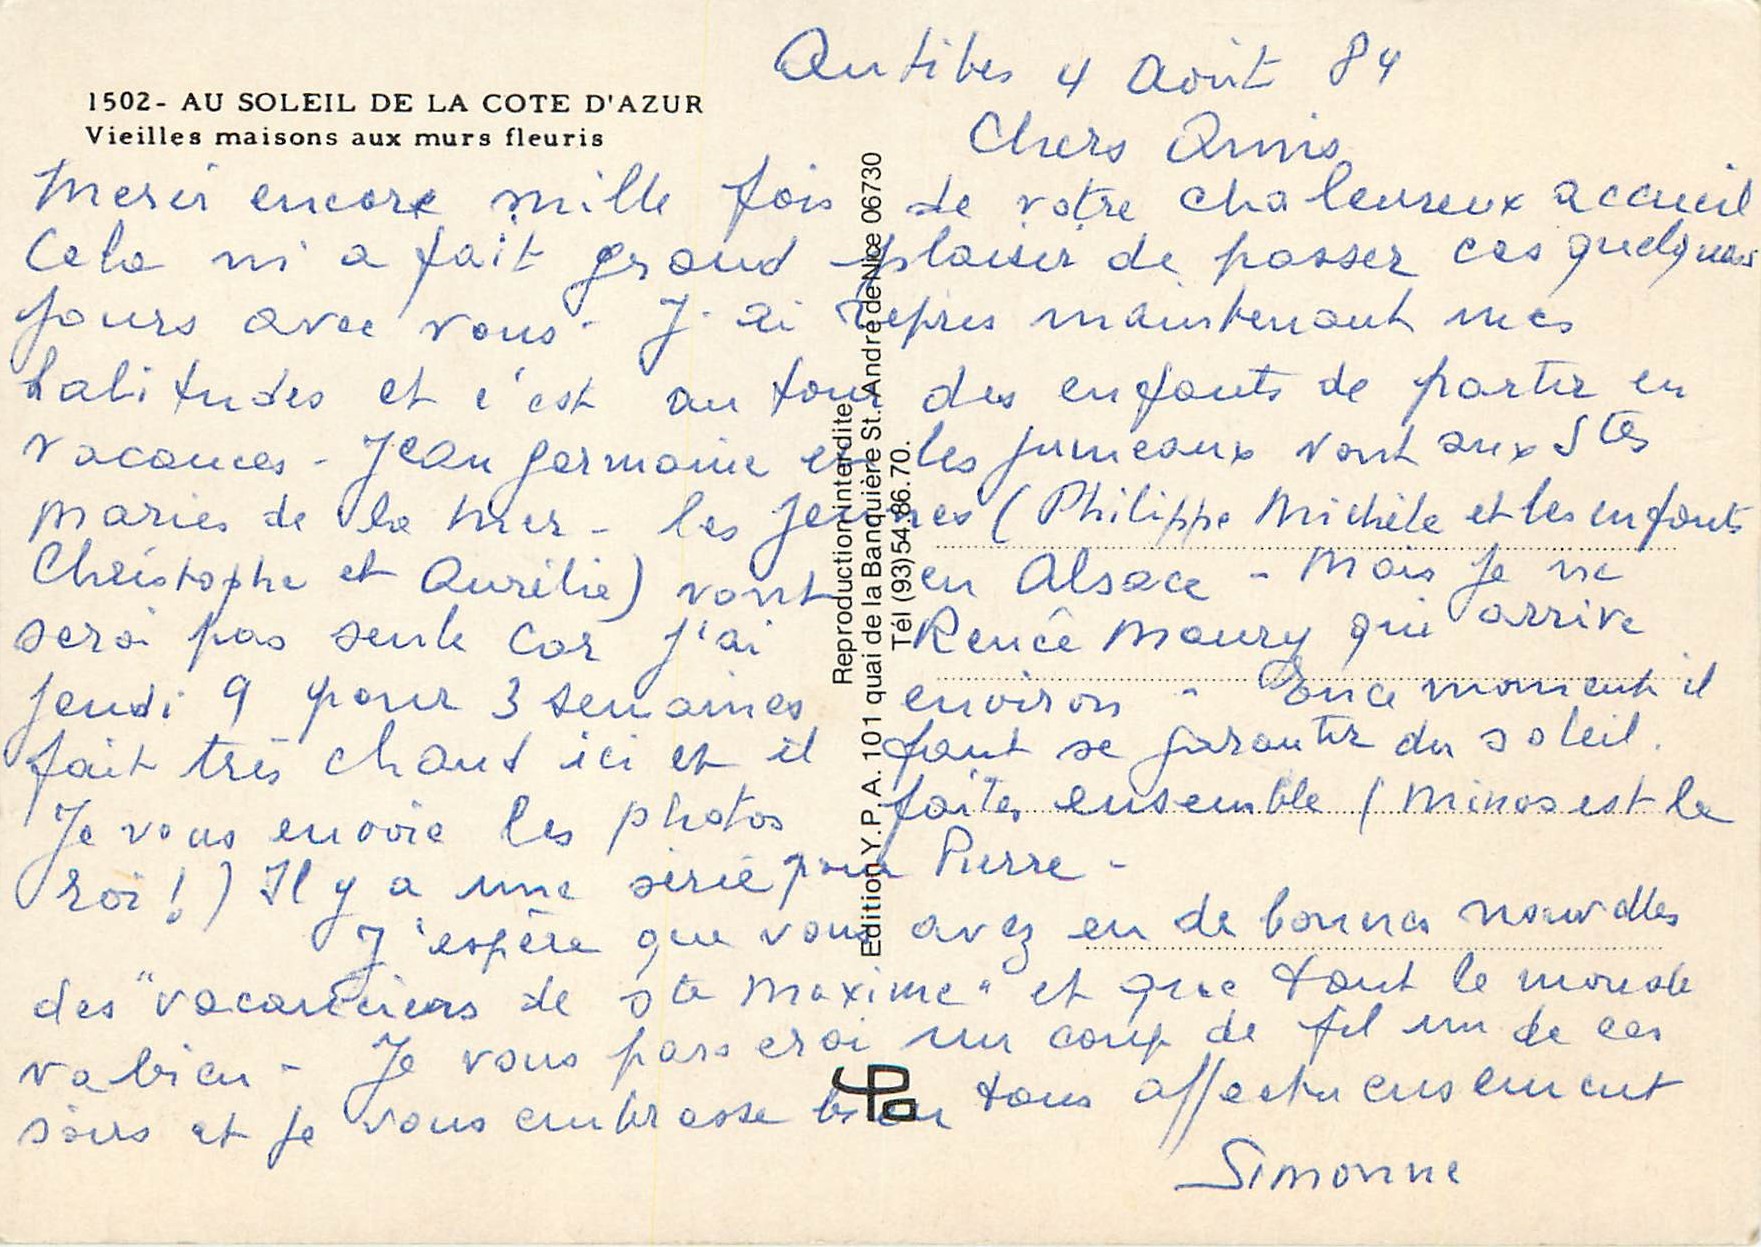 1502- AU SOLEIL DE LA COTE D'AZUR
Vieilles maisons aux murs fleuris
Antibes 4 Août 84
Chers Amis
Merci encore mille fois de votre chaleureux accueil
Cela m'a fait grand plaisir de passer ces quelques
jours avec vous - J'ai repris maintenant mes
habitudes et c'est au tour des enfants de partir en
vacances - Jean Germaine et les jumeaux vont aux Stes
Maries de la Mer - les jeunes (Philippe Michèle et les enfants
Christophe et Aurélie) vont en Alsace - Mais je ne
serai pas seule car j'ai Renée Maury qui arrive
jeudi 9 pour 3 semaines environ - En ce moment il
fait très chaud ici et il faut se garantir du soleil.
Je vous envoie les photos faites ensemble (Minos est le
roi !) Il y a une série pour Pierre -
J'espère que vous avez eu de bonnes nouvelles
des "vacanciers de Ste Maxime" et que tout le monde
va bien - Je vous passerai un coup de fil un de ces
soirs et je vous embrasse bien tous affectueusement
Simonne
Reproduction interdite
Edition Y.P.A. 1011 quai de la Banquière St. André de Nice 06730
Tél (93)54.86.70.